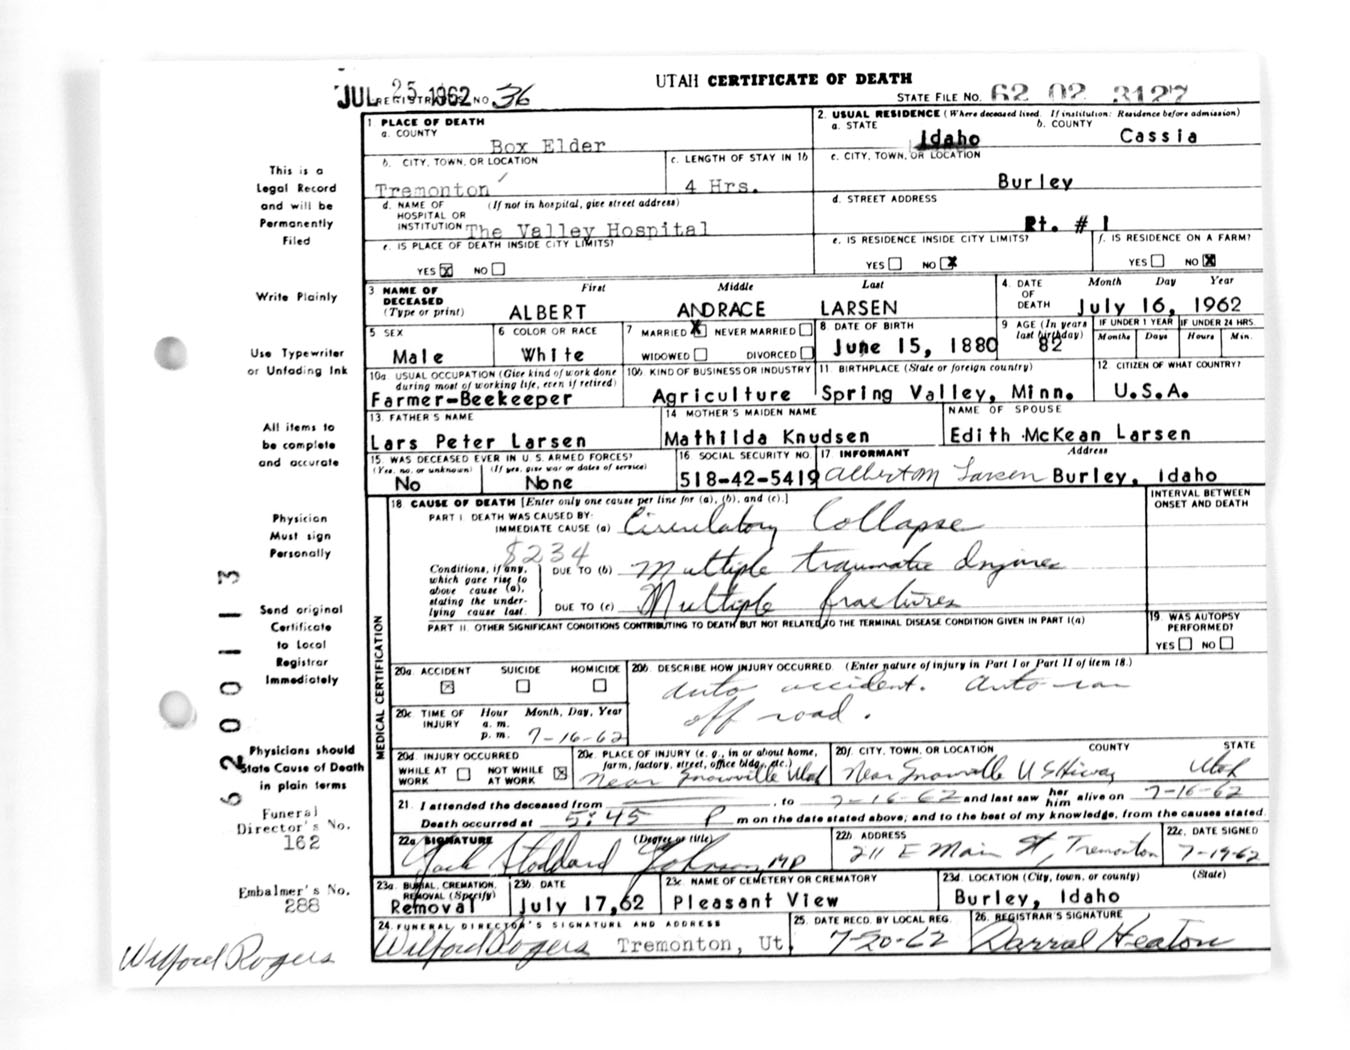 UTAH CERTIFICATE OF DEATH
JUL 25 1962 REGISTRAR'S NO. 36
STATE FILE NO. 62 02 3127
1 PLACE OF DEATH
a. COUNTY
Box Elder
2. USUAL RESIDENCE (Where deceased lived. If institution: Residence before admission)
a. STATE b. COUNTY
Idaho Cassia
b. CITY, TOWN, OR LOCATION
Tremonton
c. LENGTH OF STAY IN 1b
4 Hrs.
c. CITY, TOWN, OR LOCATION
Burley
d. NAME OF HOSPITAL OR INSTITUTION (If not in hospital, give street address)
The Valley Hospital
d. STREET ADDRESS
Rt. # 1
e. IS PLACE OF DEATH INSIDE CITY LIMITS?
YES X NO
e. IS RESIDENCE INSIDE CITY LIMITS?
YES NO X
f. IS RESIDENCE ON A FARM?
YES NO X
3 NAME OF DECEASED (Type or print)
First Middle Last
ALBERT ANDRACE LARSEN
4. DATE OF DEATH Month Day Year
July 16, 1962
5 SEX
Male
6 COLOR OR RACE
White
7 MARRIED X NEVER MARRIED
WIDOWED DIVORCED
8 DATE OF BIRTH
June 15, 1880
9 AGE (In years last birthday)
82
IF UNDER 1 YEAR IF UNDER 24 HRS.
Months Days Hours Min.
10a. USUAL OCCUPATION (Give kind of work done during most of working life, even if retired)
Farmer-Beekeeper
10b KIND OF BUSINESS OR INDUSTRY
Agriculture
11 BIRTHPLACE (State or foreign country)
Spring Valley, Minn.
12 CITIZEN OF WHAT COUNTRY?
U.S.A.
13. FATHER'S NAME
Lars Peter Larsen
14 MOTHER'S MAIDEN NAME
Mathilda Knudsen
NAME OF SPOUSE
Edith McKean Larsen
15 WAS DECEASED EVER IN U. S. ARMED FORCES?
(Yes, no, or unknown) (If yes, give war or dates of service)
No None
16 SOCIAL SECURITY NO.
518-42-5419
17 INFORMANT Address
Albert M Larsen Burley, Idaho
18 CAUSE OF DEATH [Enter only one cause per line for (a), (b), and (c).]
INTERVAL BETWEEN ONSET AND DEATH
PART I. DEATH WAS CAUSED BY:
IMMEDIATE CAUSE (a) Circulatory Collapse
8234
Conditions, if any, which gave rise to above cause (a), stating the underlying cause last.
DUE TO (b) Multiple traumatic Injuries
DUE TO (c) Multiple fractures
PART II. OTHER SIGNIFICANT CONDITIONS CONTRIBUTING TO DEATH BUT NOT RELATED TO THE TERMINAL DISEASE CONDITION GIVEN IN PART I(a)
19. WAS AUTOPSY PERFORMED?
YES NO
20a. ACCIDENT SUICIDE HOMICIDE
X
20b. DESCRIBE HOW INJURY OCCURRED. (Enter nature of injury in Part I or Part II of item 18.)
Auto accident. Auto ran
off road.
20c TIME OF INJURY Hour Month, Day, Year
a. m.
p. m. 7-16-62
20d INJURY OCCURRED
WHILE AT WORK NOT WHILE AT WORK X
20e. PLACE OF INJURY (e. g., in or about home, farm, factory, street, office bldg., etc.)
Near Snowville Utah
20f. CITY, TOWN, OR LOCATION COUNTY STATE
Near Snowville U S Hiway Utah
21. I attended the deceased from , to 7-16-62 and last saw her him alive on 7-16-62
Death occurred at 5:45 P m on the date stated above; and to the best of my knowledge, from the causes stated.
22a SIGNATURE (Degree or title)
Jack Stoddard Johnson MD
22b ADDRESS
211 E Main St, Tremonton
22c. DATE SIGNED
7-19-62
23a. BURIAL, CREMATION, REMOVAL (Specify)
Removal
23b. DATE
July 17,62
23c NAME OF CEMETERY OR CREMATORY
Pleasant View
23d. LOCATION (City, town, or county) (State)
Burley, Idaho
24. FUNERAL DIRECTOR'S SIGNATURE AND ADDRESS
Wilford Rogers Tremonton, Ut.
25. DATE RECD. BY LOCAL REG.
7-20-62
26. REGISTRAR'S SIGNATURE
Darral Heaton
MEDICAL CERTIFICATION
This is a
Legal Record
and will be
Permanently
Filed
Write Plainly
Use Typewriter
or Unfading Ink
All items to
be complete
and accurate
Physician
Must sign
Personally
Send original
Certificate
to Local
Registrar
Immediately
Physicians should
State Cause of Death
in plain terms
Funeral
Director's No.
162
Embalmer's No.
288
Wilford Rogers